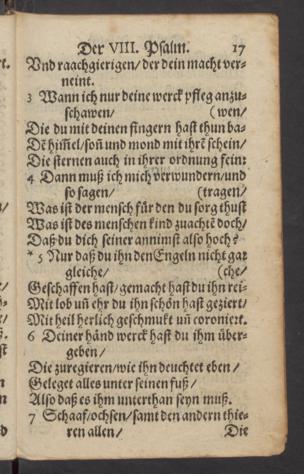 Der VIII. Psalm. 17
Vnd raachgierigen/ der dein macht ver-
neint.
3 Wann ich nur deine werck pfleg anzu-
schawen/ (wen/
Die du mit deinen fingern hast thun ba-
Dẽ him̃el/ soñ und mond mit ihrẽ schein/
Die sternen auch in ihrer ordnung fein:
4 Dann muß ich mich verwundern/ und
so sagen/ (tragen/
Was ist der mensch für den du sorg thust
Was ist des menschen kind zuachtẽ doch/
Daß du dich seiner annimst also hoch?
* 5 Nur daß du ihn den Engeln nicht gar
gleiche/ (che/
Geschaffen hast/ gemacht hast du ihn rei-
Mit lob uñ ehr du ihn schön hast geziert/
Mit heil herlich geschmukt uñ coroniert.
6 Deiner händ werck hast du ihm über-
geben/
Die zuregieren/ wie ihn deuchtet eben/
Geleget alles unter seinen fuß/
Also daß es ihm unterthan seyn muß.
7 Schaaf/ ochsen/ samt den andern thie-
ren allen/ Die